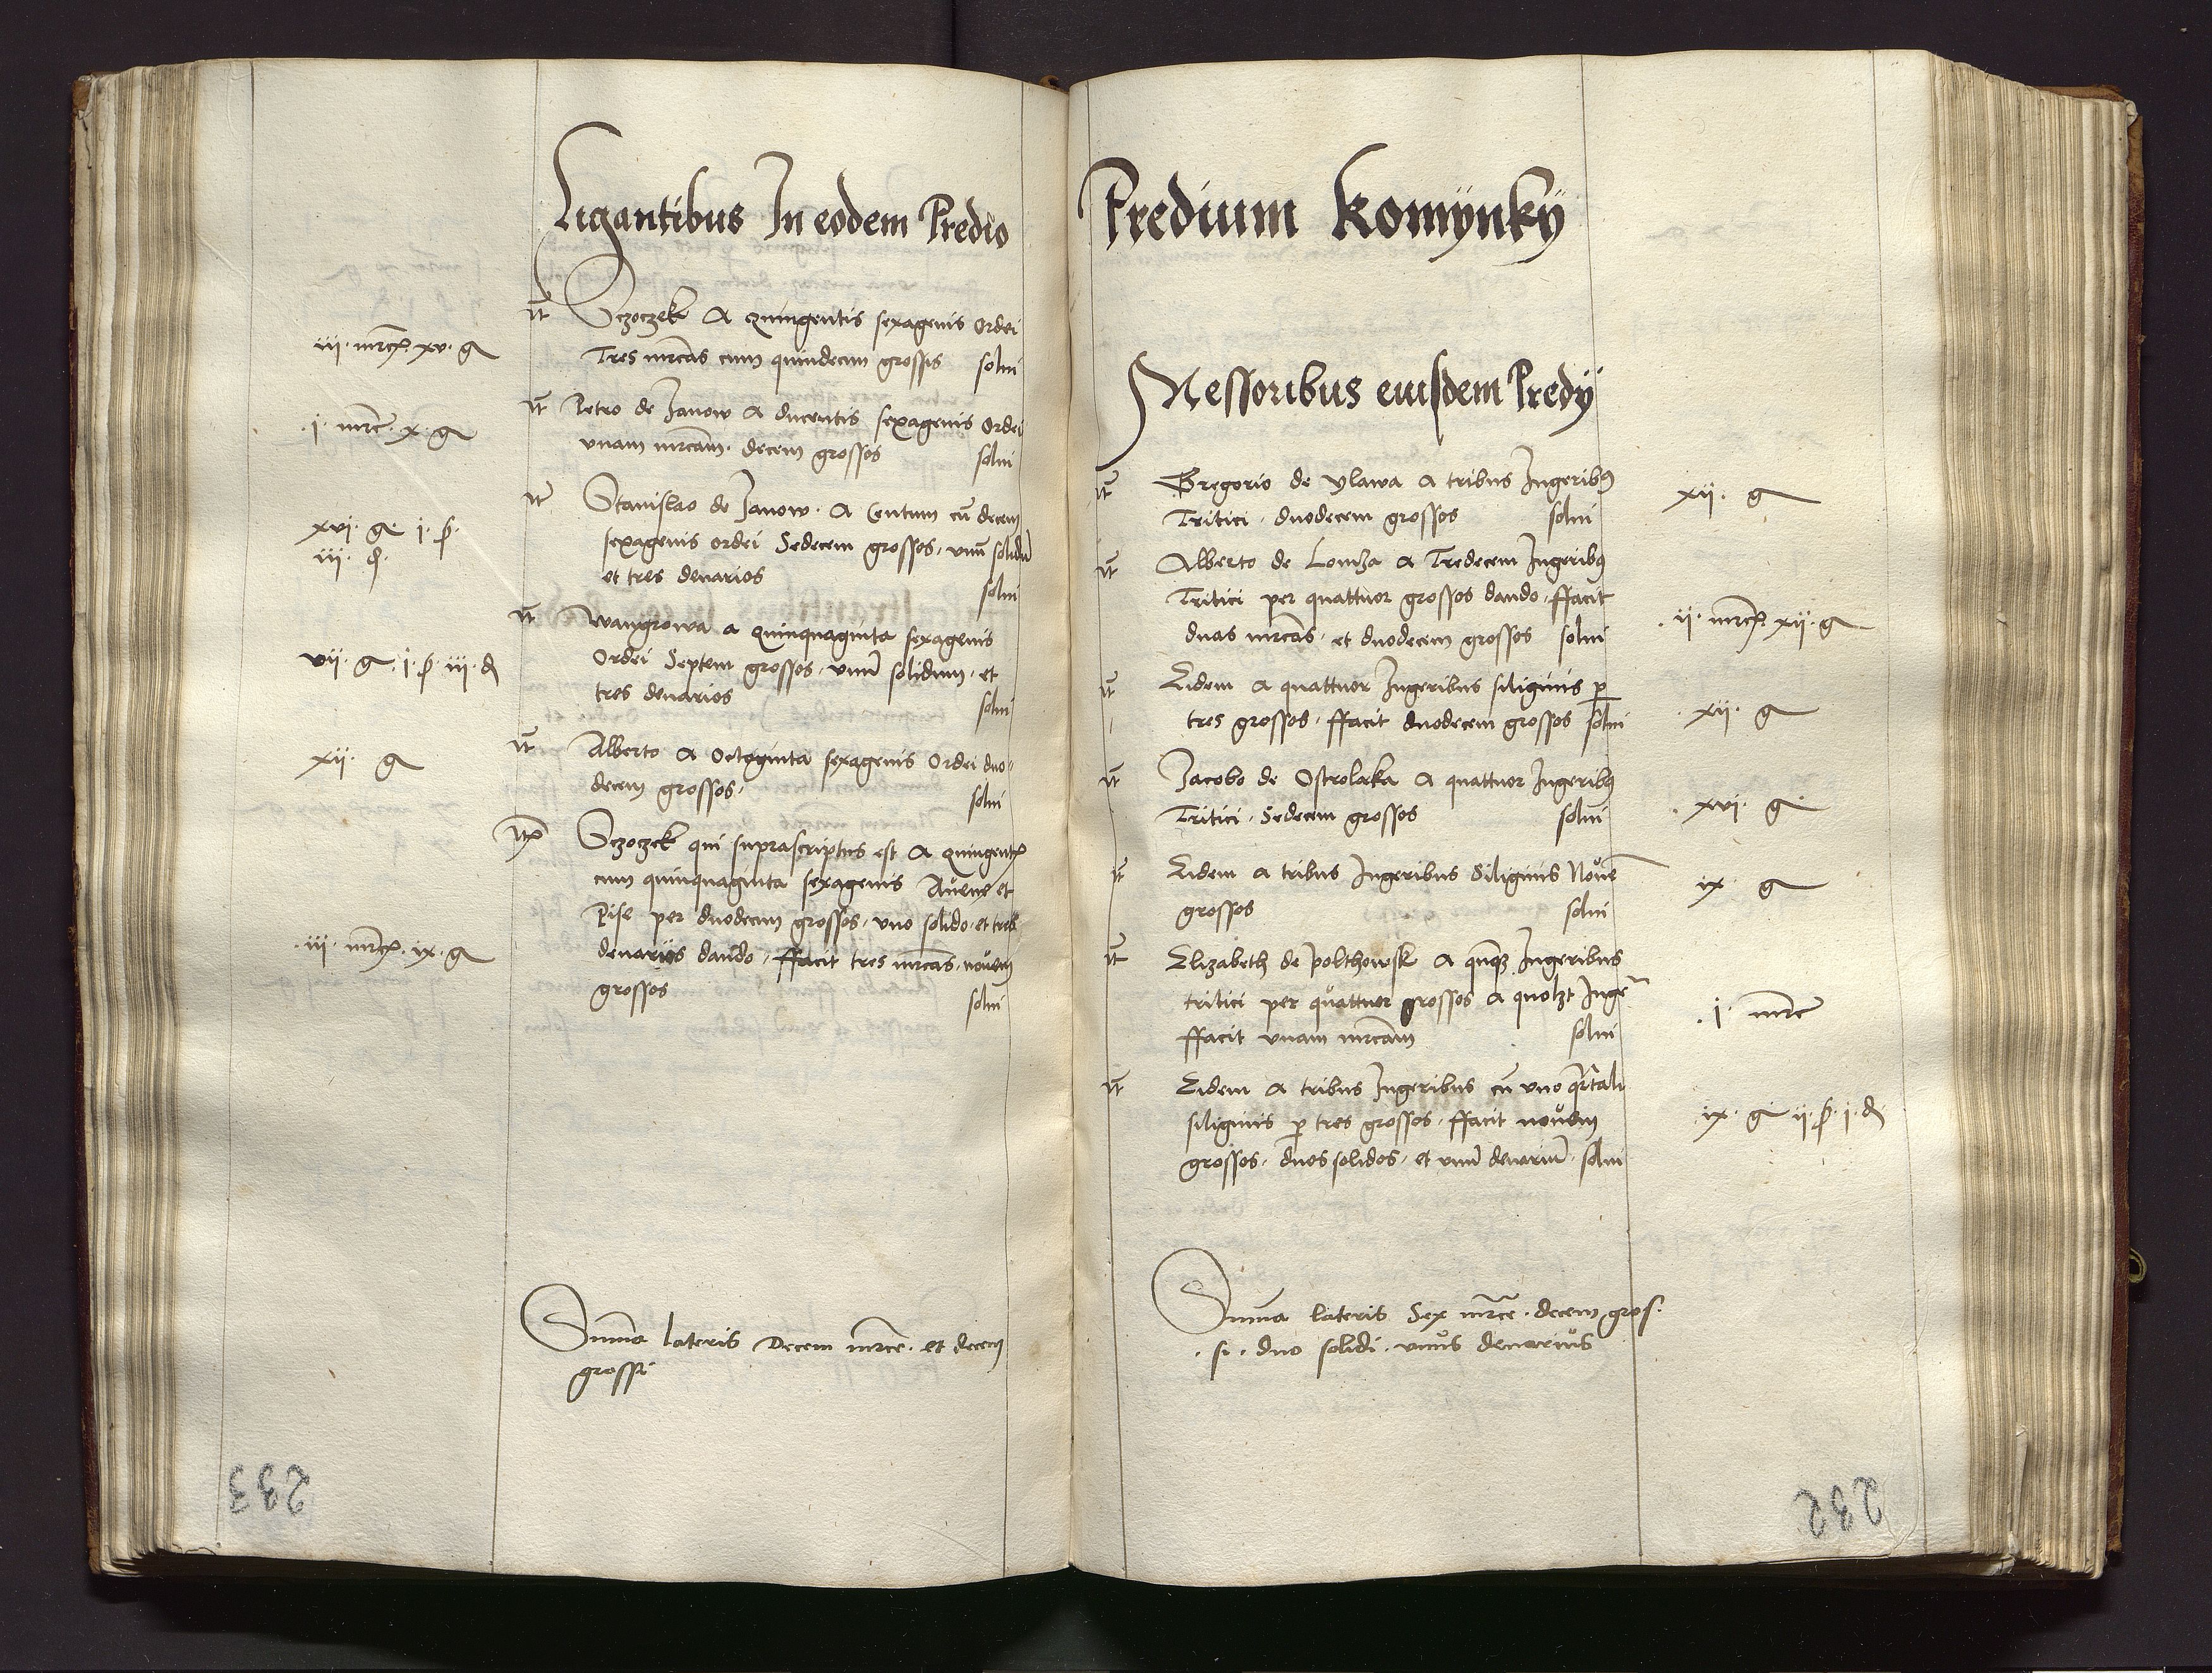 Ligantibus In eodem Predio
It Sczoczek A quingentis sexagenis Ordei
iii mrcs. xv. g
Tres mrcas cum quindecim grossis solui
It Petro de Janow A ducentis sexagenis Ordei
i mrc. x. g
vnam mrcam. decem grossos solui
It Stanislao de Janow. A Centum cu decem
xvi. g. i. ß.
sexagenis ordei Sedecem grossos. vnu solidu
iii. d.
et tres denarios
solui
It Wangrowa a quinquaginta sexagenis
vii. g. i. ß. iii. d
Ordei Septem grossos. vnu solidum. et
tres denarios solui
It Alberto A Octoginta sexagenis Ordei duo
xii. g
decem grossos. solui
It Sczoczek qui suprascriptus est A quingent
cum quinquaginta sexagenis Auene et
Pise per duodecim grossos. vno solido. et trib
iii. mrcs. ix. g
denariis dando. ffacit tres mrcas. nouem
grossos solui
Suma lateris Decem mrce. et decem
grossi
233
Predium Komÿnkÿ
Messoribus eiusdem Predÿ
It Gregorio de ylawa A tribus Jugeribus
xii. g
Tritici. duodecem grossos solui
It Alberto de Lomza A Tredecem Jugeribus
Tritici per quattuor grossos dando. ffacit
ii. mrcs. xii. g
duas mrcas. et duodecem grossos solui
It Eidem A quattuor Jugeribus siliginis p
xii. g
tres grossos. ffacit duodecem grossos solui
It Jacobo de Ostrolæka A quattuor Jugeribus
xvi. g
Tritici. Sedecem grossos solui
It Eidem A tribus Jugeribus Siliginis Noue
ix g
grossos solui
It Elizabeth de polthowsk A quq Jugeribus
tritici per quattuor grossos A quolzt Juge
i. mrc
ffacit vnam mrcam solui
It Eidem A tribus Jugeribus cu vno qrtali
ix. g ii. ß. i. d
siliginis p tres grossos. ffacit nouem
grossos. duos solidos. et vnu denariu. solui
Suma lateris Sex mrce. decem gros.
. si. duo solidi. vnus denarius
232